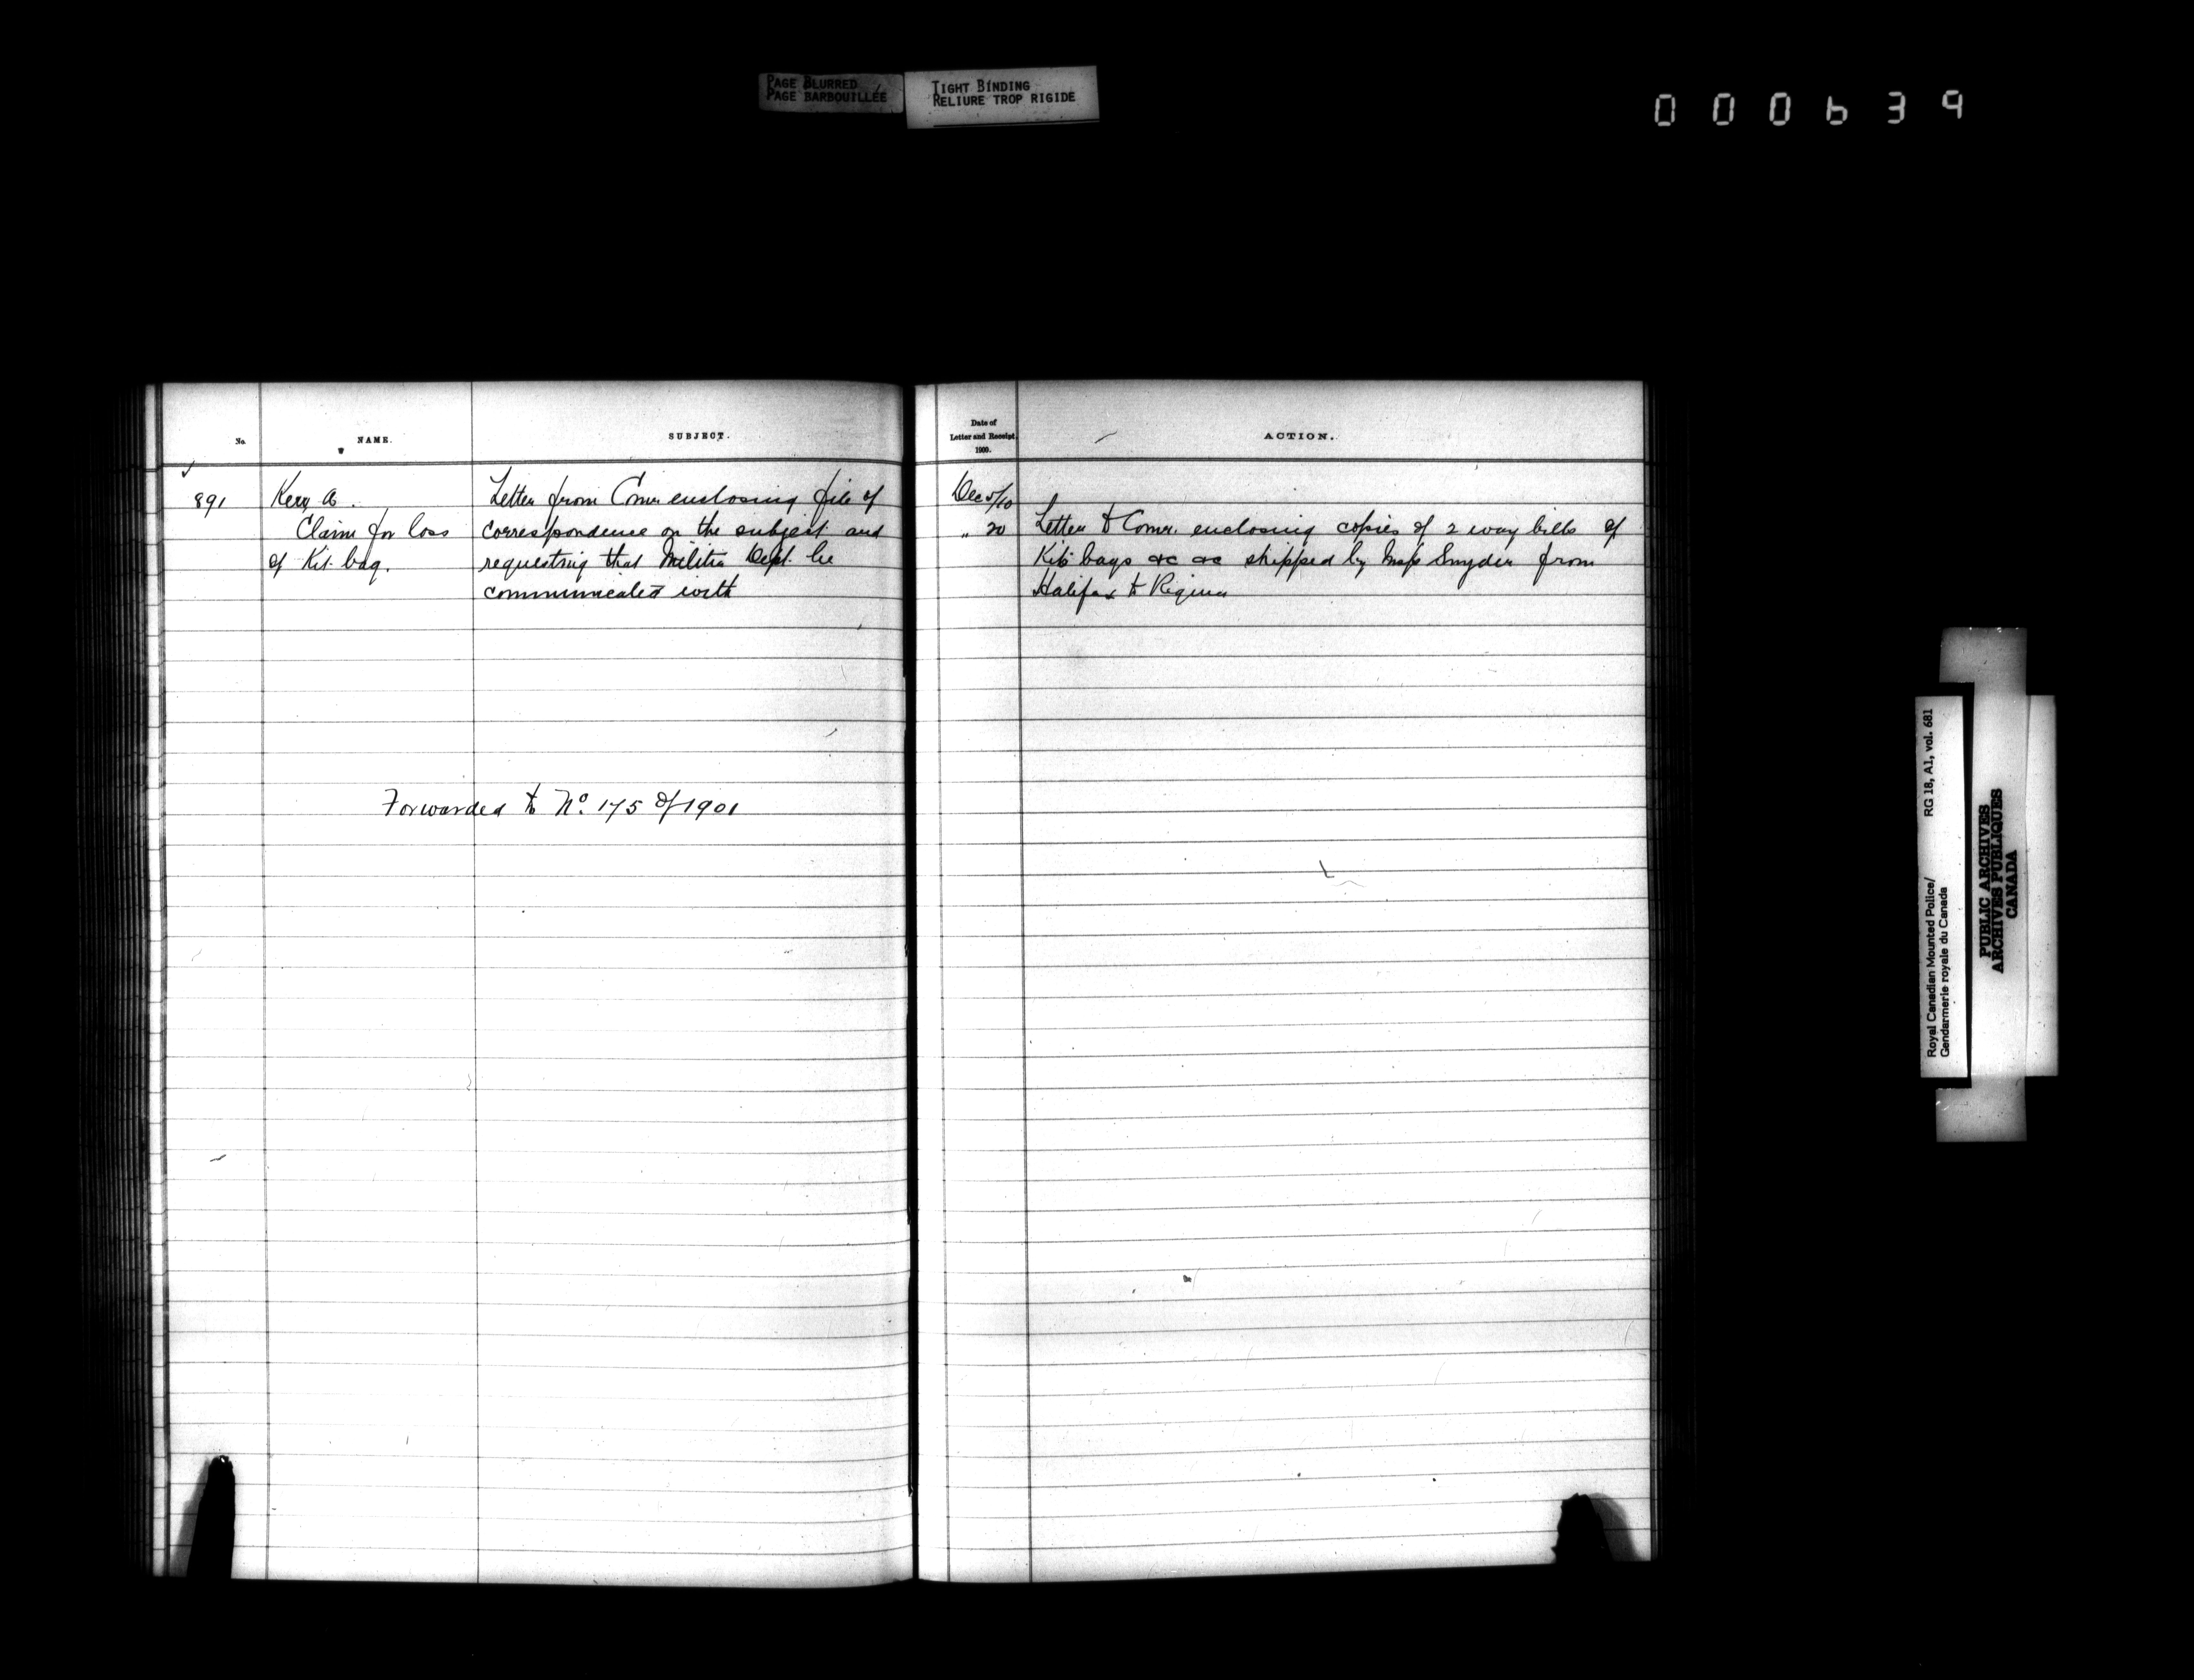 PAGE BLURRED
PAGE BARBOUILLÉE
TIGHT BINDING
RELIURE TROP RIGIDE
000639
No.
NAME.
SUBJECT.
891
Kerr, A.
Claim for loss
of Kit bag.
Letter from Comr. enclosing file of
correspondence on the subject and
requesting that Militia Dept. be
communicated with
Forwarded to No. 175 of 1901
Date of
Letter and Receipt.
1900.
ACTION.
Dec 5/10
„ 20
Letter to Comr. enclosing copies of 2 way bills of
Kit bags &c &c shipped by Snyder from
Halifax to Regina
Royal Canadian Mounted Police/
Gendarmerie royale du Canada
RG 18, A1, vol. 681
PUBLIC ARCHIVES
ARCHIVES PUBLIQUES
CANADA